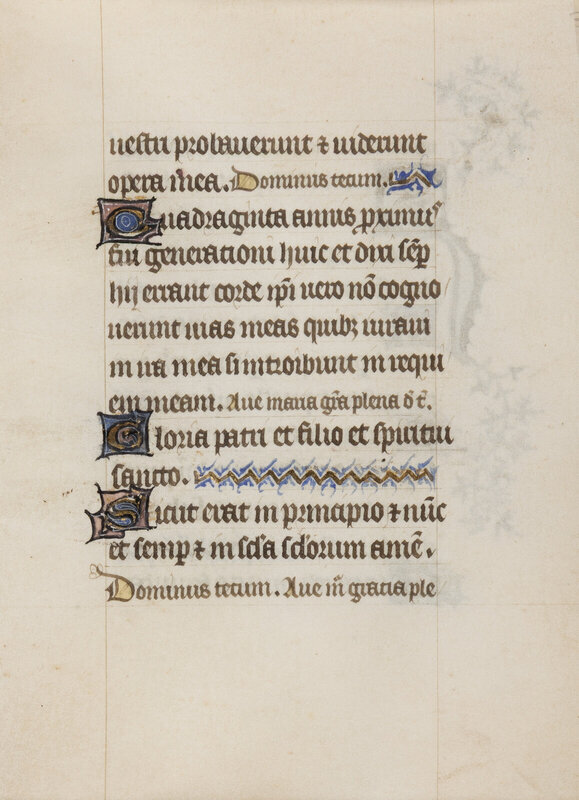 uestri probauerunt ⁊ uiderunt
opera mea. Dominus tecum.
Quadraginta annis proximus
fui generationi huic et dixi semꝑ
hij errant corde ip̄i uero nō cogno
uerunt uias meas quibꝫ iuraui
in ira mea si introibunt in requi
em meam. Aue maria gr̄a plena d̄ t̄.
Gloria patri et filio et spiritui
sancto.
Sicut erat in principio ⁊ nūc
et semꝑ ⁊ in sc̄la sc̄lorum amē.
Dominus tecum. Aue m̄ gracia ple